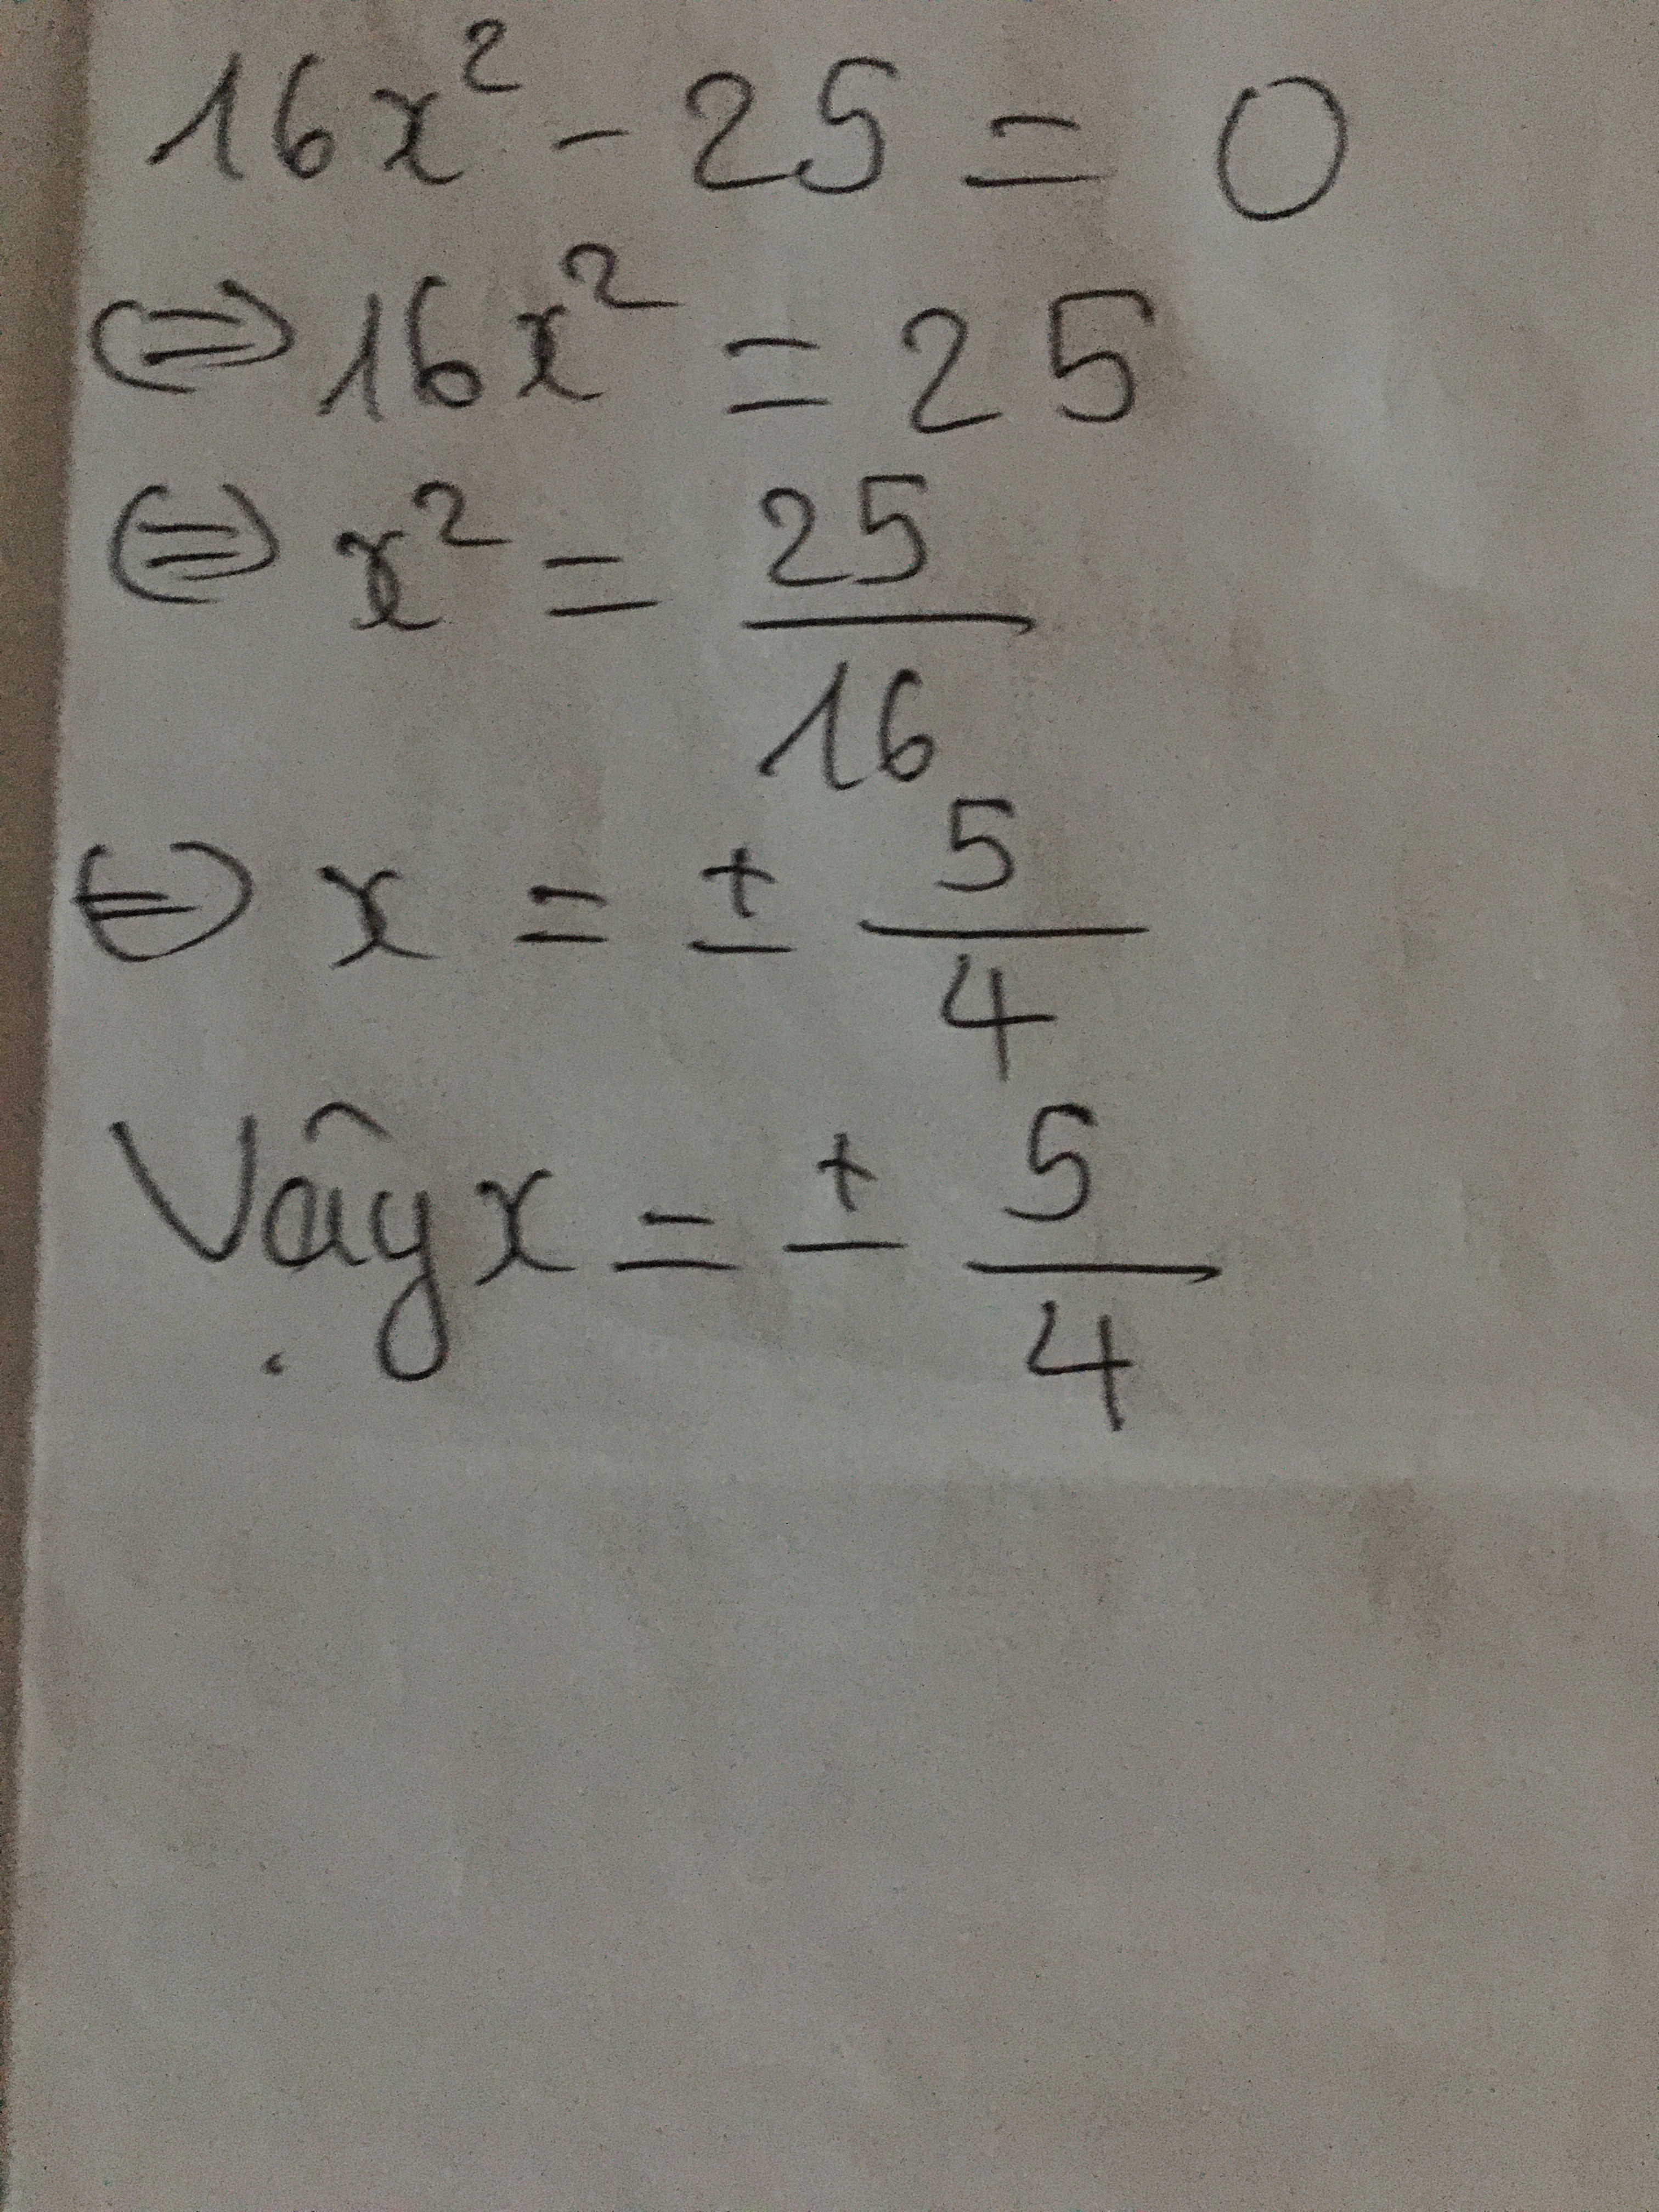 16x² - 25 = 0
⇔ 16x² = 25
⇔ x² = 25/16
⇔ x = ± 5/4
Vậy x = ± 5/4